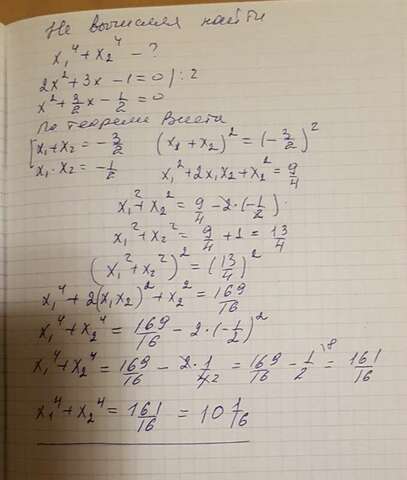 Не вычисляя найти
x₁⁴ + x₂⁴ - ?
2x² + 3x - 1 = 0 | : 2
x² + 3/2 x - 1/2 = 0
По теореме Виета
{ x₁ + x₂ = - 3/2 (x₁ + x₂)² = (- 3/2)²
x₁ · x₂ = - 1/2 x₁² + 2x₁x₂ + x₂² = 9/4
x₁² + x₂² = 9/4 - 2 · (- 1/2)
x₁² + x₂² = 9/4 + 1 = 13/4
(x₁² + x₂²)² = (13/4)²
x₁⁴ + 2(x₁x₂)² + x₂² = 169/16
x₁⁴ + x₂⁴ = 169/16 - 2 · (- 1/2)²
x₁⁴ + x₂⁴ = 169/16 - 2 · 1/4 2 = 169/16 - 1/2 \8 = 161/16
x₁⁴ + x₂⁴ = 161/16 = 10 1/16